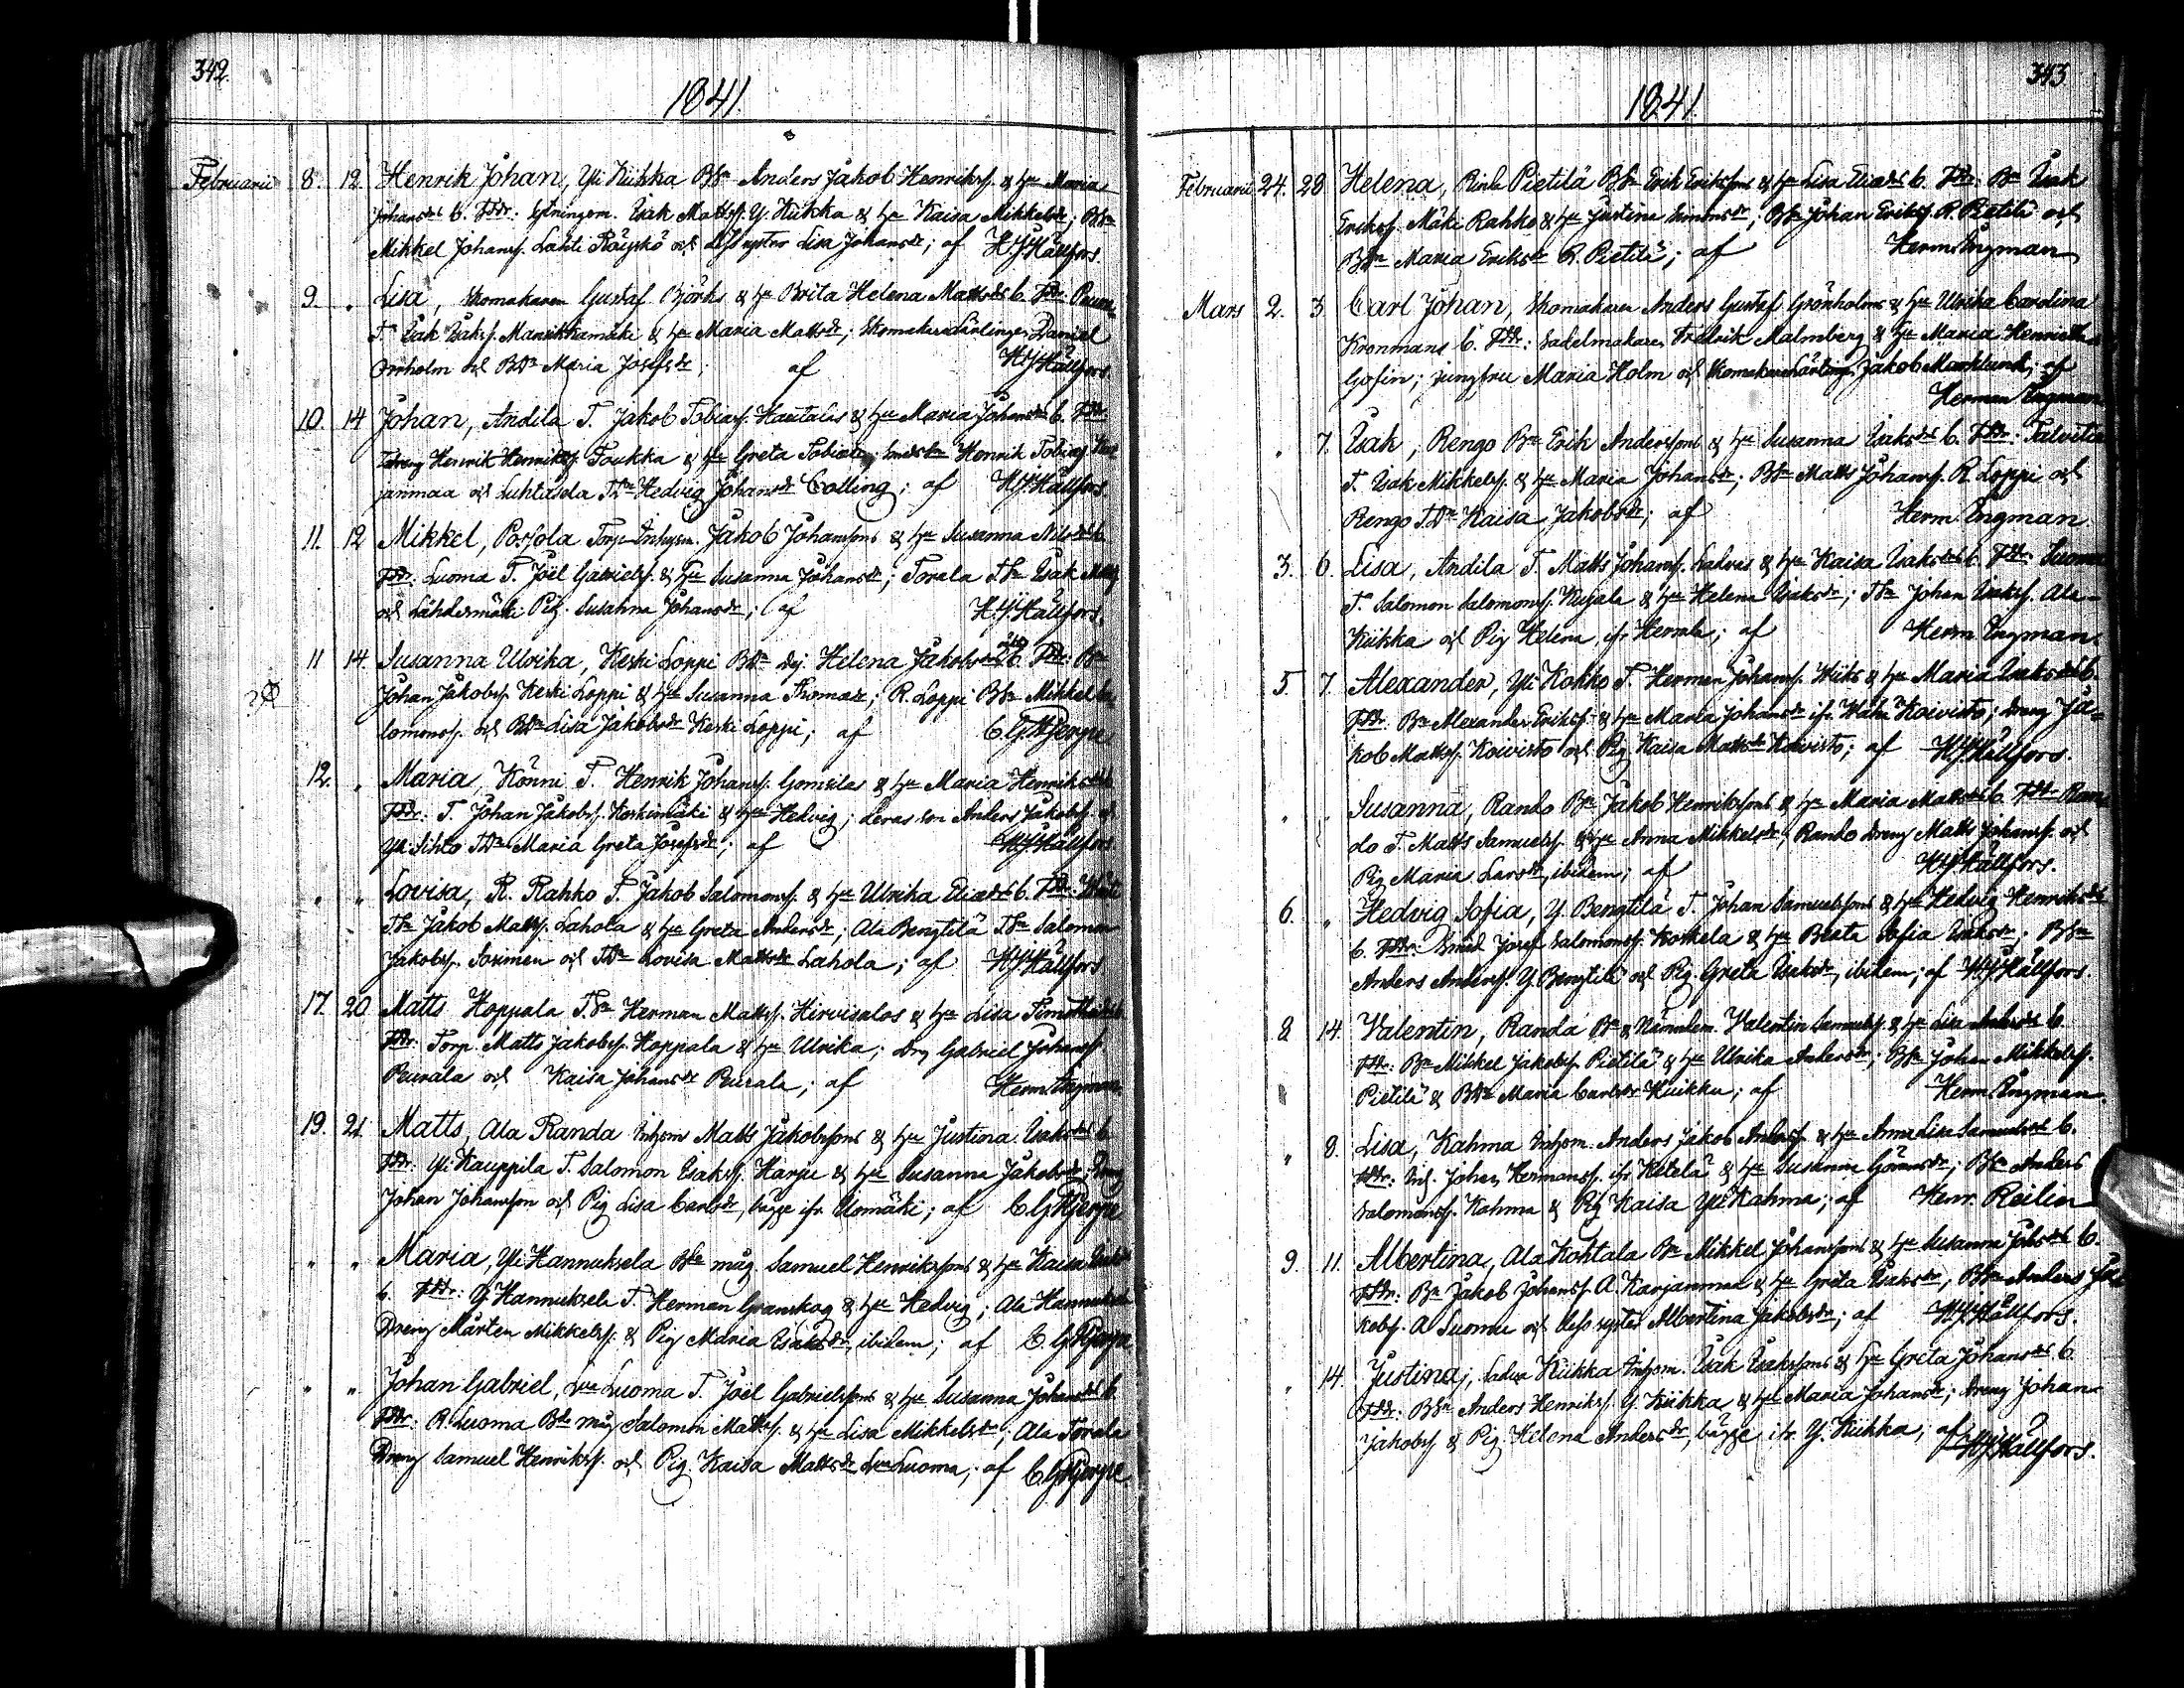 342.
1841.
Februarii 8. 12. Henrik Johan, Yli Kiikka BSn Anders Jakob Henrikss. & hu Maria
Johansdrs b. Fddr: Isak Matts. Y. Kiikka & hu Kaisa Mikkelsdr; BSn
Mikkel Johanss. Lahti Räyskö och dess syster Lisa Johansdr; af H.J. Hällfors.
9. " Lisa, Skomakaren Gustaf Björks & hu Brita Helena Mattsdrs b. Fddr:
T. Isak Isakss. & hu Maria Mattsdr; Skomakare Lärlingen Daniel
Örnholm och BDr Maria Josefsdr; af H.J. Hällfors
10. 14 Johan, Andila T. Jakob Tobiass. Hautalas & hu Maria Johansdrs b. Fddr
Dreng Henrik Henrikss. Toukka & hu Greta Tobiasdr; Henrik Tobiass. Kar
janmaa och Luhtasela TDr Hedvig Johansdr Colling; af H.J. Hällfors.
11. 12 Mikkel, Poijola Torp Inhysn. Jakob Johanssons & hu Susanna Nilsdrs b.
Fddr: Luoma T. Joël Gabrielss. & hu Susanna Johansdr; Torala TSn Isak Matts.
och Lähdermäki Pig. Susanna Johansdr; af H.J. Hällfors.
11 14. Susanna Ulrika, Keski Loppi BDr Dej. Helena Jakobsdrs b. Fddr: Bn
Johan Jakobss. Keski Loppi & hu Susanna Thomasdr; R. Loppi BSn Mikkel Sa
lomonss. och BDr Lisa Jakobsdr Keski Loppi; af C.G. Hjerpe
12. " Maria, Könni T. Henrik Johanss. Gomsilas & hu Maria Henriksdrs b
Fddr: T. Johan Jakobss. Koskimäki & hu Hedvig; deras son Anders Jakobss. och
Yli Sihto TDr Maria Greta Josefsdr; af H.J. Hällfors.
" " Lovisa, R. Rahko T. Jakob Salomonss. & hu Ulrika Eliædrs b. Fddr:
TSn Jakob Matts. Lahola & hu Greta Andersdr; Ala Bengtilä TSn Salomon
Jakobss. Sorinen och TDr Lovisa Mattsdr Lahola; af H.J. Hällfors
17. 20 Matts Hoppala TSn Herman Matts. Hirvisalos & hu Lisa
Fddr: Torp. Matts Jakobss. Hoppala & hu Ulrika; Drg Gabriel Johanss
Peurala och Kaisa Johansdr Peurala; af Herm. Engman.
19. 21. Matts, Ala Randa Inhysn Matts Jakobssons & hu Justina Isaksdrs b
Fddr: Yli Kauppila T. Salomon Isakss. Harju & hu Susanna Jakobsdr; Dreng
Johan Johansson och Pig Lisa Carlsdr, bägge ifr. Uomäki; af C.G. Hjerpe
" " Maria, Yli Hannuksela Bde måg. Samuel Henrikssons & hu Kaisa
b. Fddr: Y. Hannuksela T. Herman Granskog & hu Hedvig; Ala Hannuksela
Dreng Mårten Mikkelss. & Pig Maria Isaksdr, ibidem; af C.G. Hjerpe
" " Johan Gabriel, Luoma T. Joël Gabrielssons & hu Susanna Johansdrs b.
Fddr: R. Luoma Bde måg Salomon Matts. & hu Lisa Mikkelsdr; Ala Torala
Dreng Samuel Henrikss. och Pig. Kaisa Mattsdr Luoma; af C.G. Hjerpe.
343
1841.
Februarii 24. 28 Helena, Rinta Pietilä BSn Erik Erikssons & hu Lisa Eliædrs b. Fddr: Bn Isak
Erikss. Mäki Rahko & hu Justina Simonsdr; BSn Johan Erikss. R. Pietilä och
BDr Maria Eriksdr R. Pietilä; af Herm. Engman
Mars 2. 3 Carl Johan, Skomakaren Anders Gustaf Grönholms & hu Ulrika Carolina
Kronmans b. Fddr: Sadelmakaren Fredrik Malmberg & hu Maria Henrietta
Gosin; Jungfru Maria Holm och Skomakare Lärlingen Jakob Marklund; af
Herman Engman.
" 7. Isak, Rengo Bn Erik Anderssons & hu Susanna Isaksdrs b. Fddr: Talvitie
T. Isak Mikkelss. & hu Maria Johansdr; BSn Matts Johanss. R. Loppi och
Rengo TDr Kaisa Jakobsdr; af Herm. Engman.
3. 6. Lisa, Andila T. Matts Johanss. Ladvas & hu Kaisa Isaksdrs b. Fddr: Luoma
T. Salomon Salomonss. Kujala & hu Helena Isaksdr; TSn Johan Isakss. Ala-
Kiikka och Pig Helena, ifr. Herrala; af Herm. Engman.
5. 7. Alexander, Yli Kokko T. Herman Johanss. Wiiks & hu Maria Isaksdrs b.
Fddr: Bn Alexander Erikss. & hu Maria Johansdr ifr. Wähä Koivisto; Dreng Ja-
kob Matts. Koivisto och Pig. Kaisa Mattsdr Koivisto; af H.J. Hällfors.
" " Susanna, Rando Bn Jakob Henrikssons & hu Maria Mattsdrs b. Fddr Ran
do T. Matts Samuelss. & hu Anna Mikkelsdr; Rando Dreng Matts Johanss. och
Pig Maria Larsdr, ibidem; af H.J. Hällfors.
6. " Hedvig Sofia, Y. Bengtilä T. Johan Samuelssons & hu Hedvig Henriksdrs
b. Fddr: Smed Josef Salomonss. Koskela & hu Beata Sofia Isaksdr; BSn
Anders Anderss. Y. Bengtilä och Pig. Greta Isaksdr, ibidem; af H.J. Hällfors.
8 14. Valentin, Randa Bn & Nämndem. Valentin Samuelss. & hu Lisa Andersdrs b.
Fddr: Bn Mikkel Jakobss. Pietilä & hu Ulrika Andersdr; BSn Johan Mikkelss.
Pietilä & BDr Maria Carlsdr Huikku; af Herm. Engman.
" 8. Lisa, Kahma Inhysn. Anders Jakob Anderss. & hu Anna Lisa Samuelsdrs b.
Fddr: Inh. Johan Hermanss. ifr Ketelä & hu Susanna Göransdr; BSn Anders
Salomonss. Kahma & Pig Kaisa Yli Kahma; af Henr. Reilin
9. 11. Albertina, Ala Kohtala Bn Mikkel Johanssons & hu Susanna Jobsdrs b.
Fddr: Bn Jakob Johanss. A. Karjanmaa & hu Greta Isaksdr; BSn Anders Ja-
kobss. A Luoma och dess syster Albertina Jakobsdr; af H.J. Hällfors.
" 14. Justina, Kiikka Inhysn. Isak Isakssons & hu Greta Johansdrs b.
Fddr: BSn Anders Henrikss. Y. Kiikka & hu Maria Johansdr; Dreng Johan
Jakobss & Pig Helena Andersdr, bägge ifr. Y. Kiikka; af H.J. Hällfors.